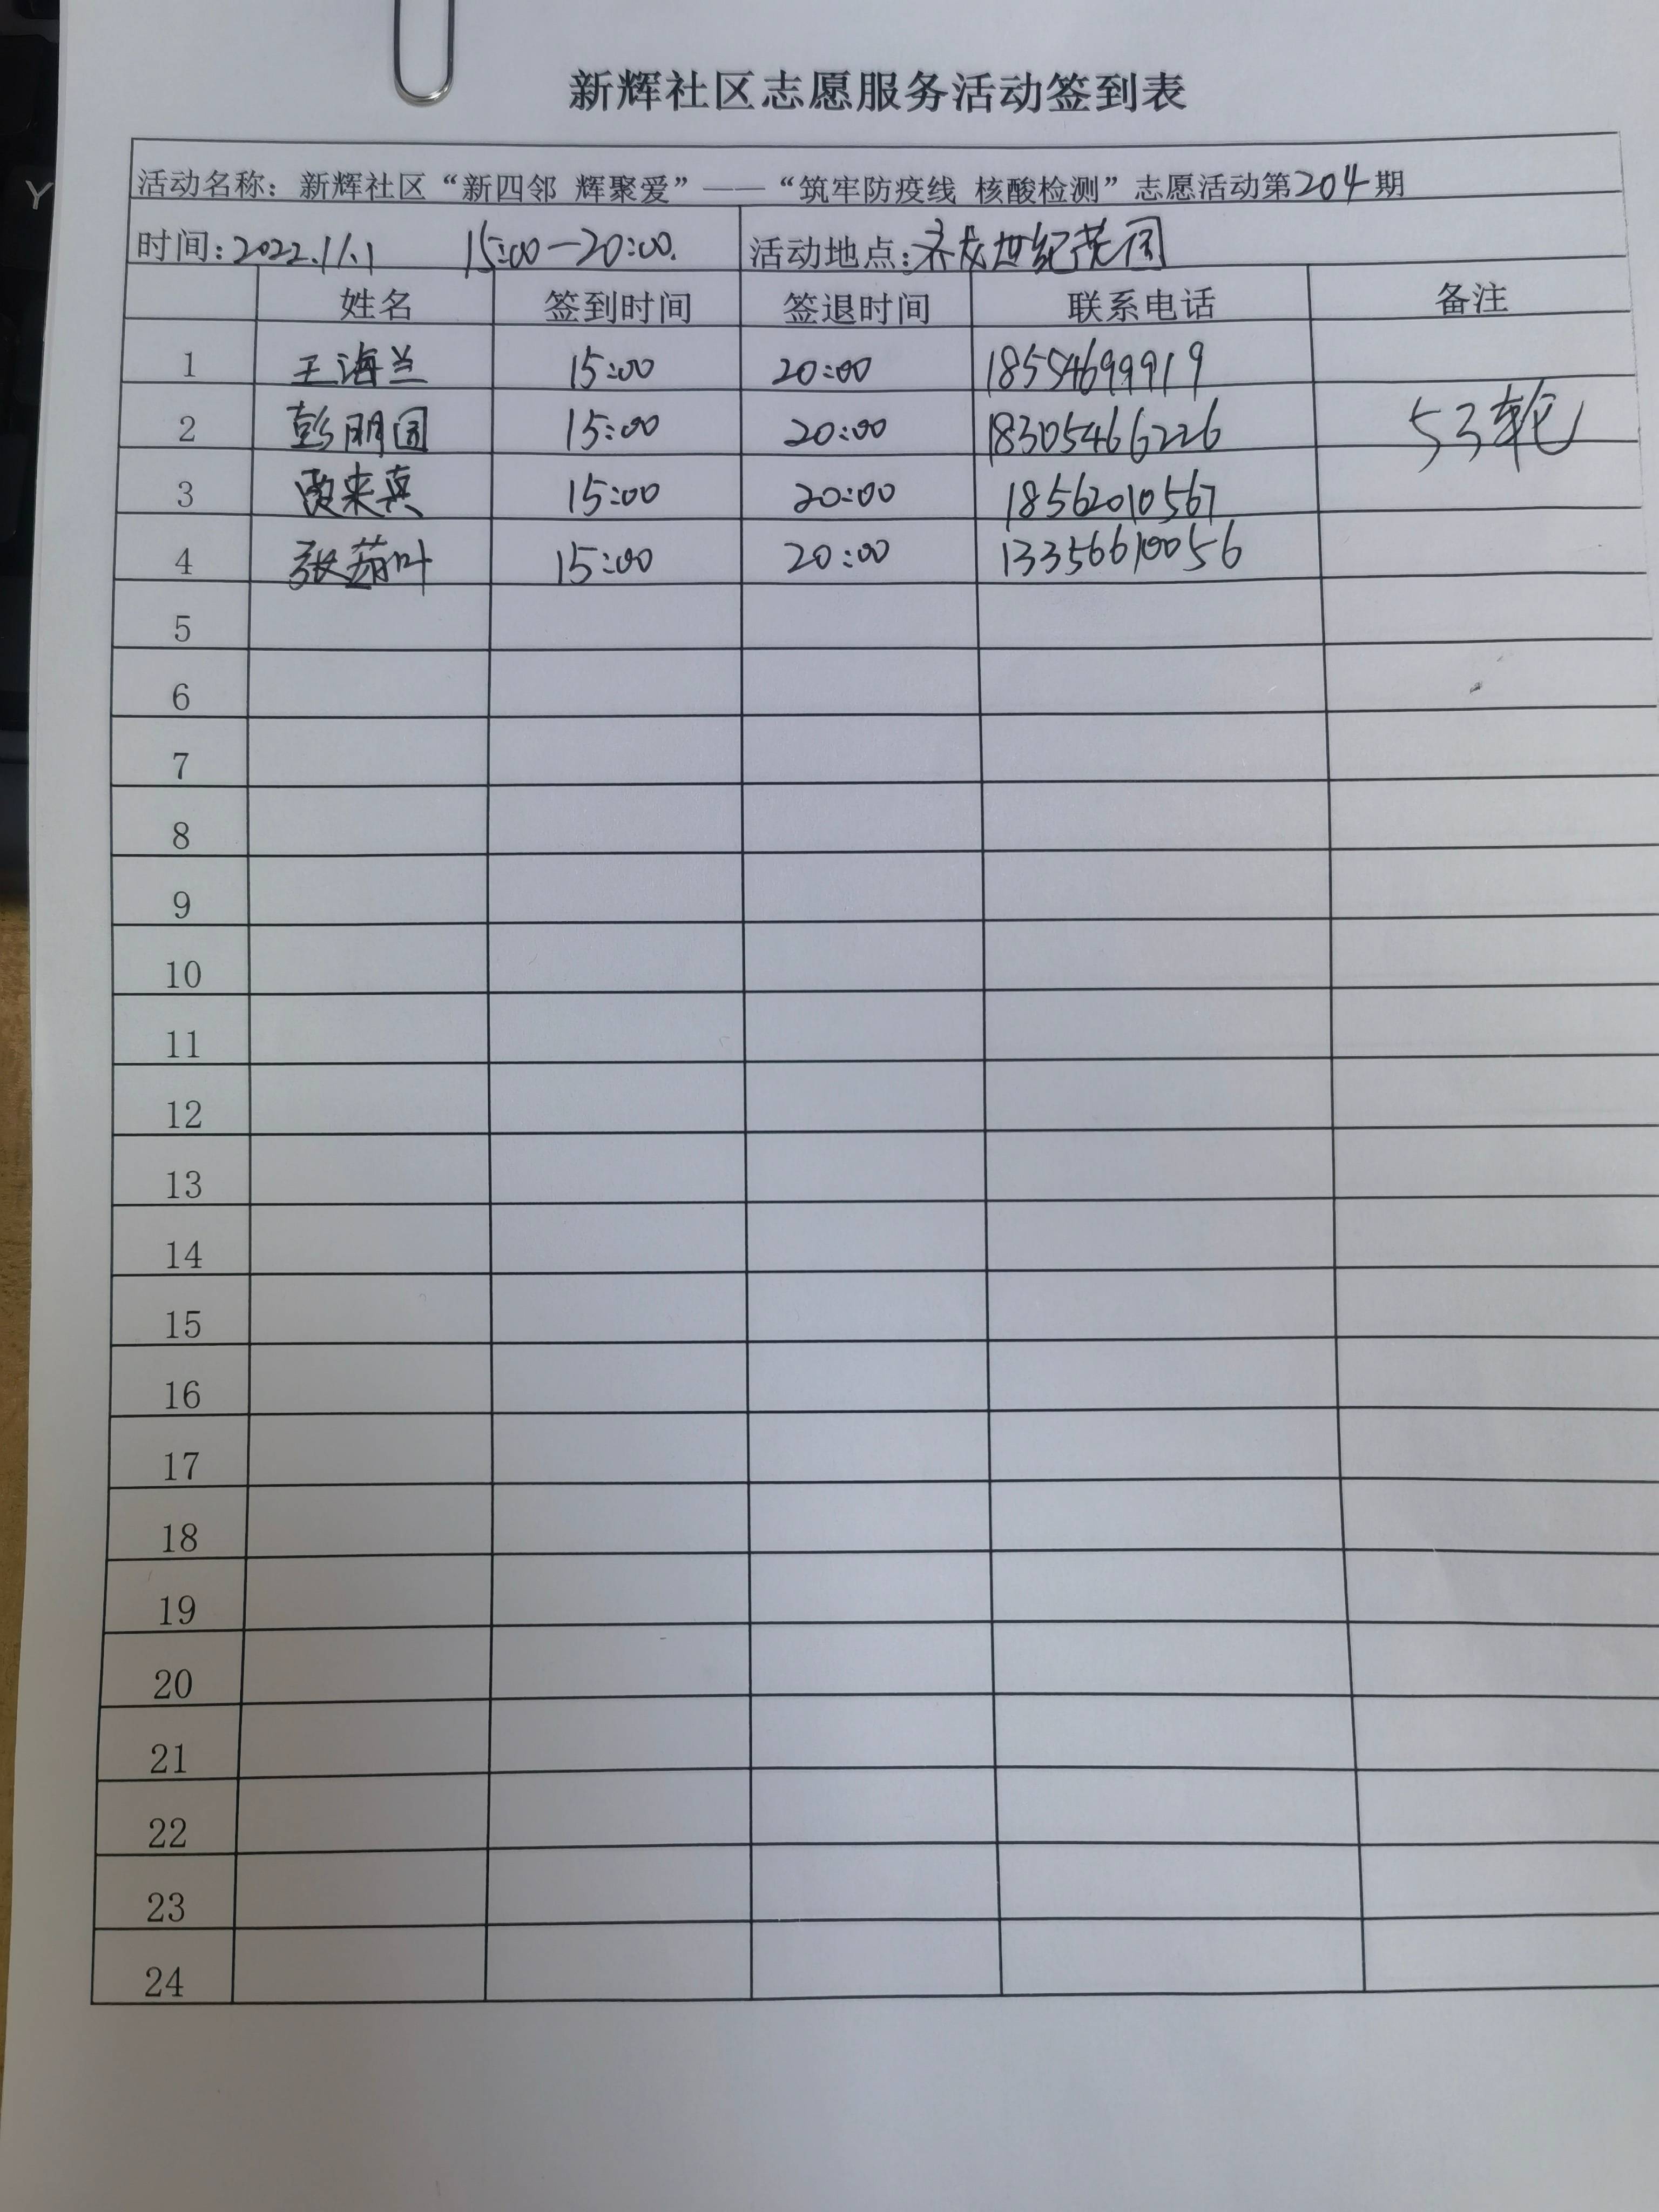 新辉社区志愿服务活动签到表
活动名称：新辉社区“新四邻 辉聚爱”——“筑牢防疫线 核酸检测”志愿活动第204期
时间：2022.11.1 15:00—20:00. 活动地点：世纪英园
姓名 签到时间 签退时间 联系电话 备注
1 王海兰 15:00 20:00 18554699919
2 彭明国 15:00 20:00 18305466226 53轮
3 贾来真 15:00 20:00 18562010567
4 张荷叶 15:00 20:00 13356610056
5
6
7
8
9
10
11
12
13
14
15
16
17
18
19
20
21
22
23
24
Y